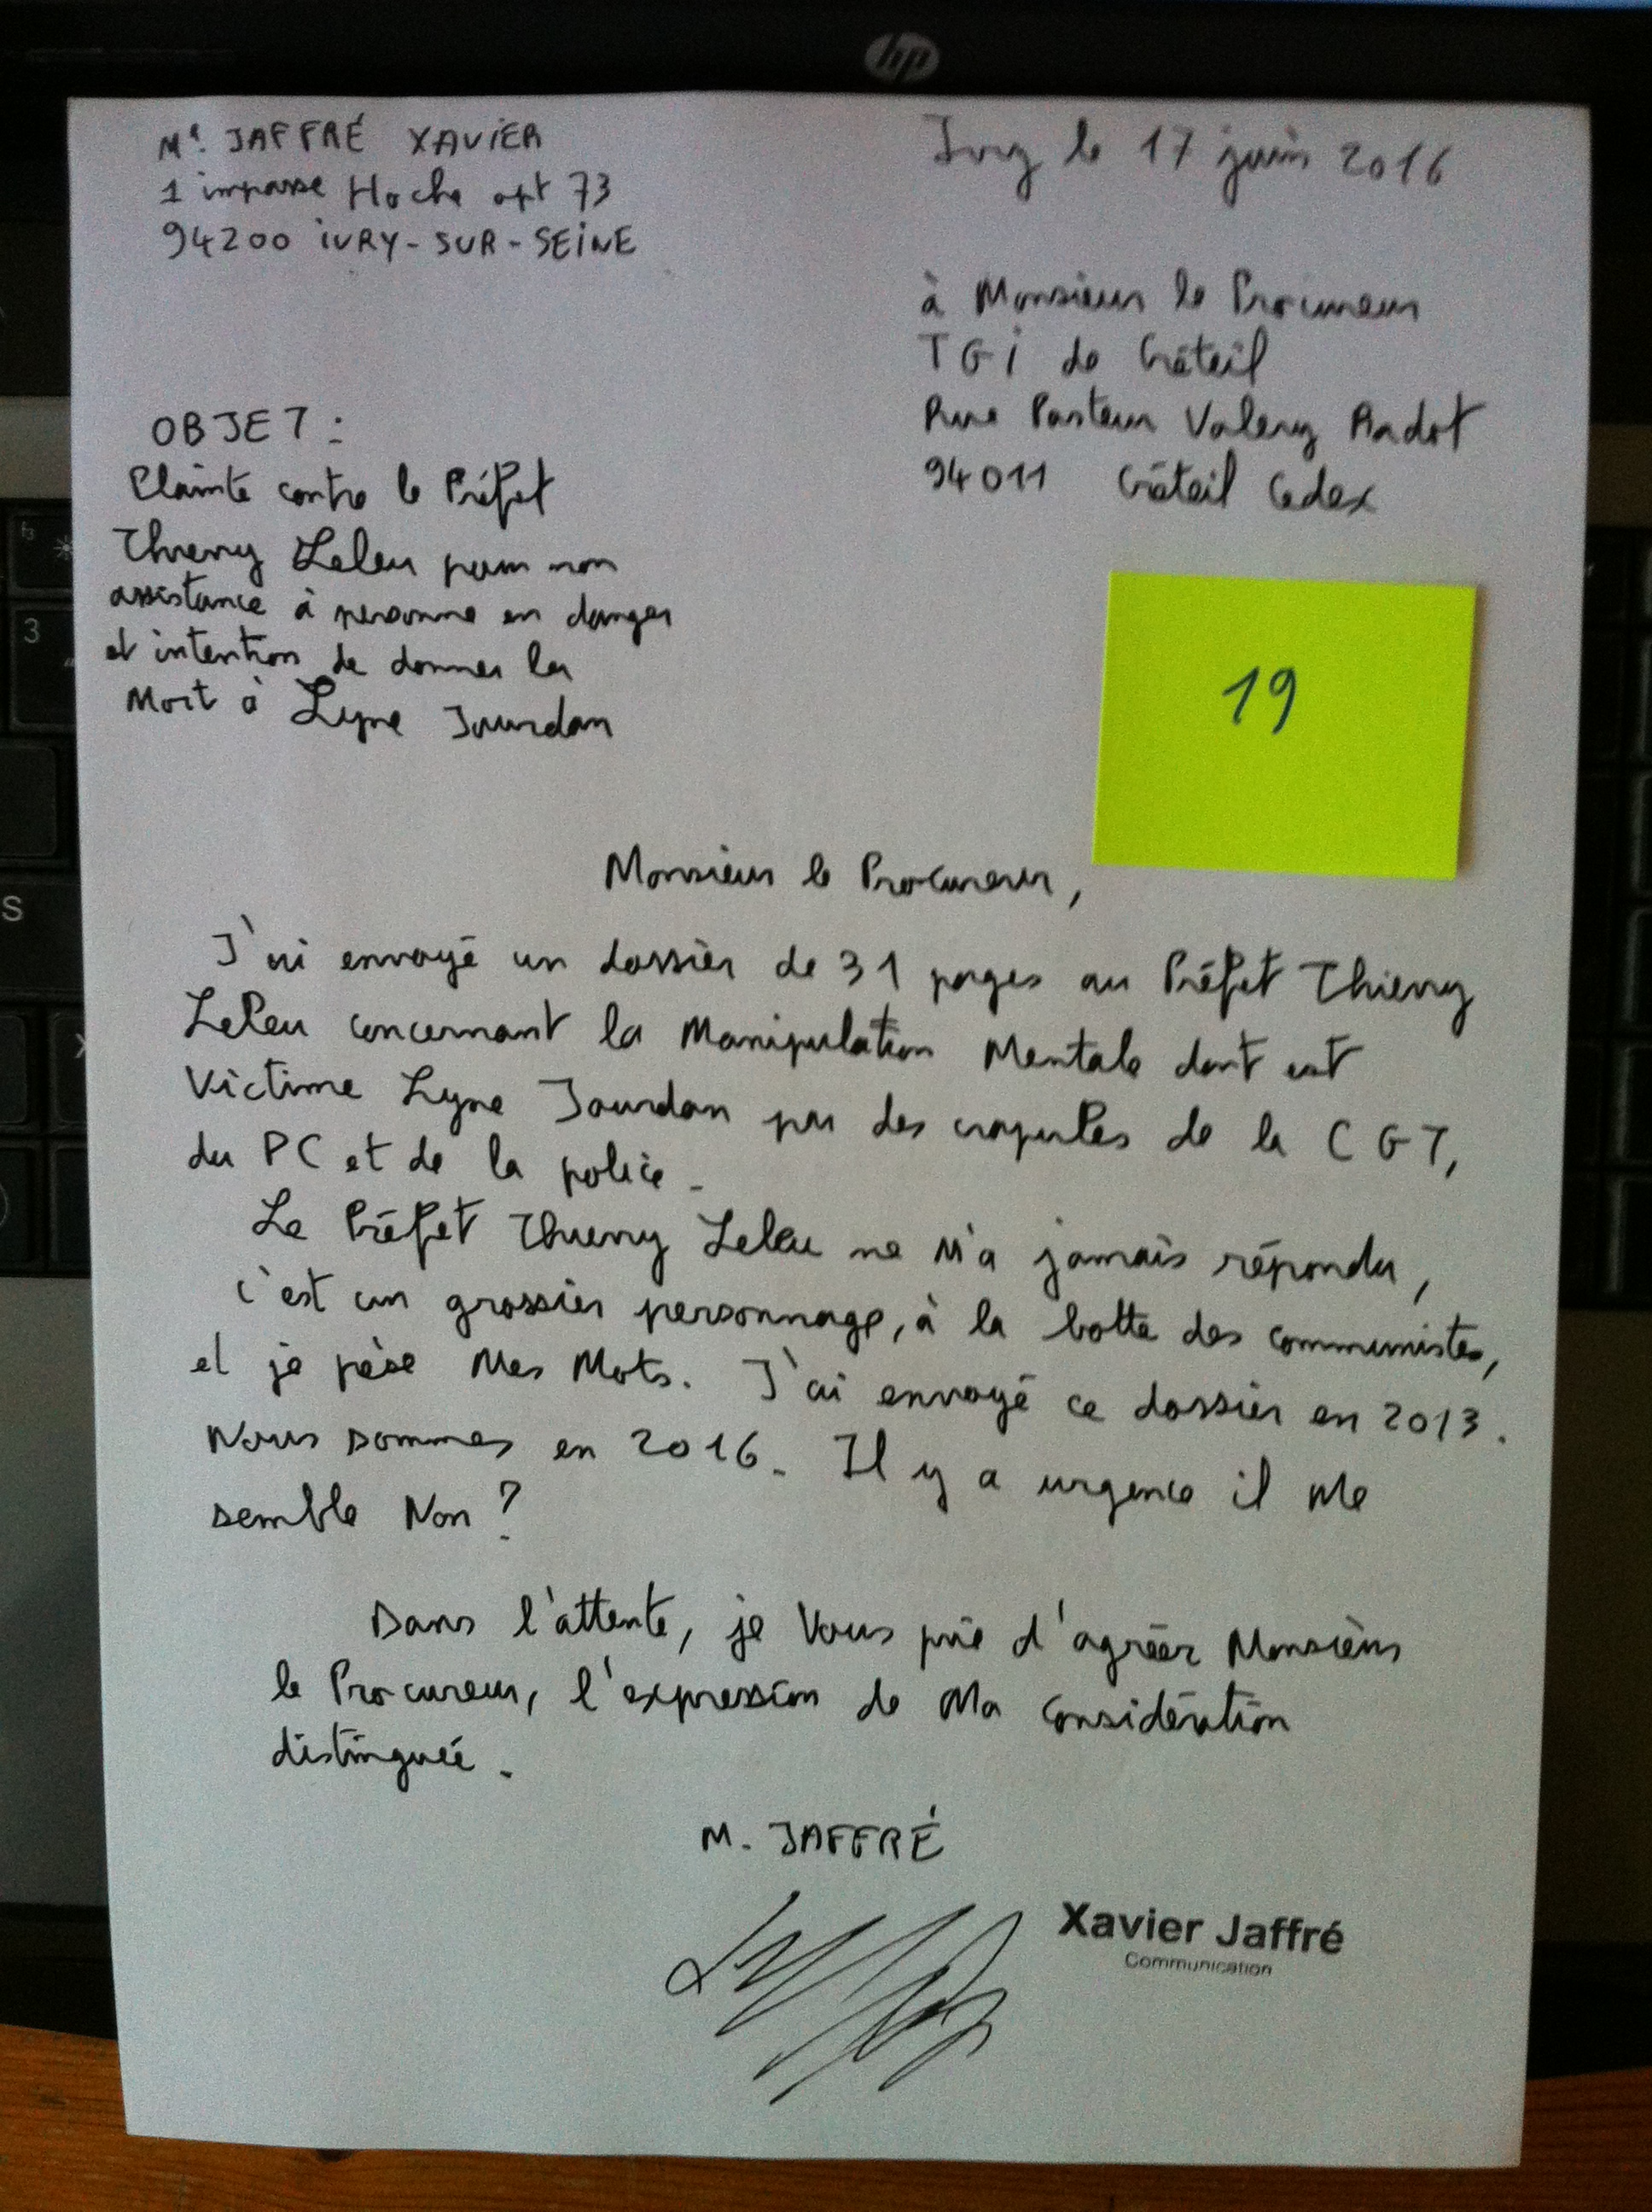 hp
Mr. JAFFRÉ XAVIER
1 impasse Hoche apt 73
94200 IVRY-SUR-SEINE
Ivry le 17 juin 2016
à Monsieur le Procureur
TGI de Créteil
Rue Pasteur Valery Radot
94011 Créteil Cedex
OBJET :
Plainte contre le Préfet
Thierry Leleu pour non
assistance à personne en danger
et intention de donner la
Mort à Lyne Jourdan
19
Monsieur le Procureur,
J'ai envoyé un dossier de 31 pages au Préfet Thierry
Leleu concernant la Manipulation Mentale dont est
Victime Lyne Jourdan par des crapules de la CGT,
du PC et de la police.
Le Préfet Thierry Leleu ne m'a jamais répondu,
c'est un grossier personnage, à la botte des communistes,
et je pèse Mes Mots. J'ai envoyé ce dossier en 2013.
Nous sommes en 2016. Il y a urgence il Me
semble Non ?
Dans l'attente, je Vous prie d'agréer Monsieur
le Procureur, l'expression de Ma Considération
distinguée.
M. JAFFRÉ
Xavier Jaffré
Communication
f3
3
S
X